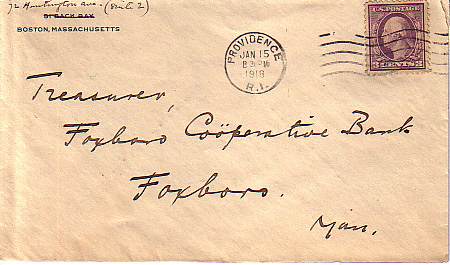 72 Huntington Ave. (Suite 2)
BACK BAY
BOSTON, MASSACHUSETTS
PROVIDENCE
JAN 15
8 PM
1918
R.I.
3 CENTS 3
Treasurer,
Foxboro Coöperative Bank
Foxboro.
Mass.